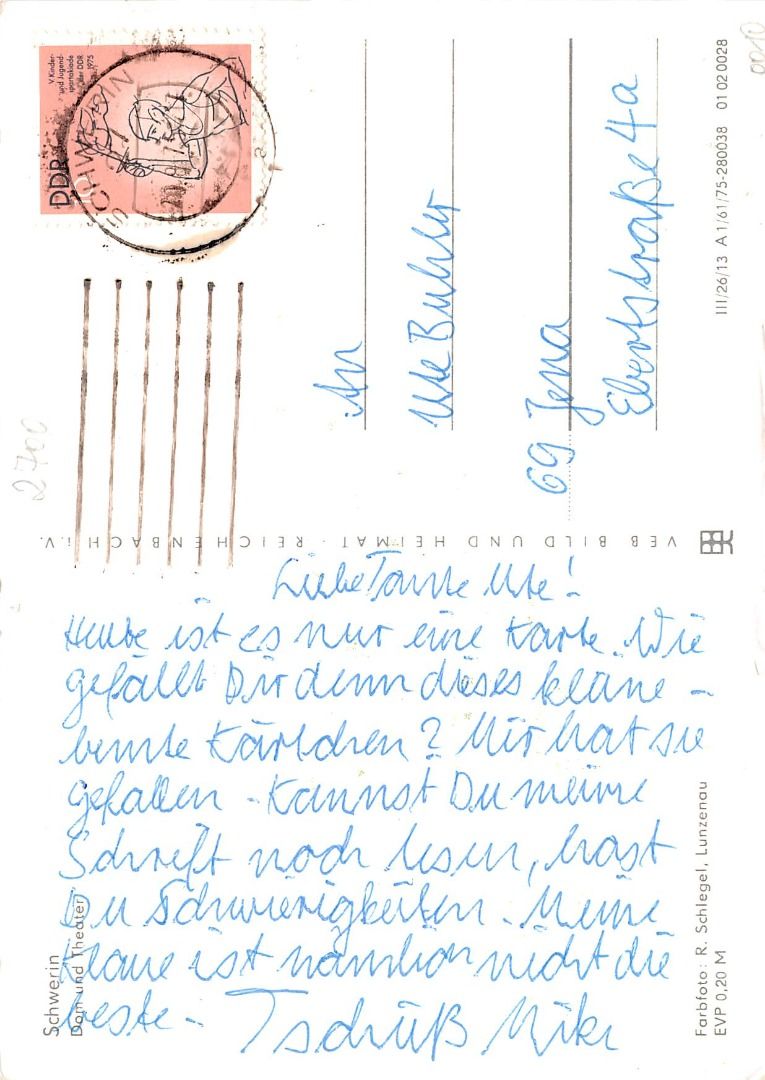 V. Kinder-
und Jugend-
spartakiade
der DDR
1975
DDR
10
SCHWERIN
An
Ute Buhler
69 Jena
Ebertstraße 4a
III/26/13 A 1/61/75-280038 01 02 0028
0010
2700
VEB BILD UND HEIMAT · REICHENBACH i. V.
Liebe Tante Ute!
Heute ist es nur eine Karte. Wie
gefällt Dir denn dieses kleine -
bunte Kärtchen? Mir hat sie
gefallen - Kannst Du meine
Schrift noch lesen, hast
Du Schwierigkeiten. Meine
Klaue ist nämlich nicht die
beste - Tschüß
Schwerin
Dom und Theater
Farbfoto: R. Schlegel, Lunzenau
EVP 0,20 M